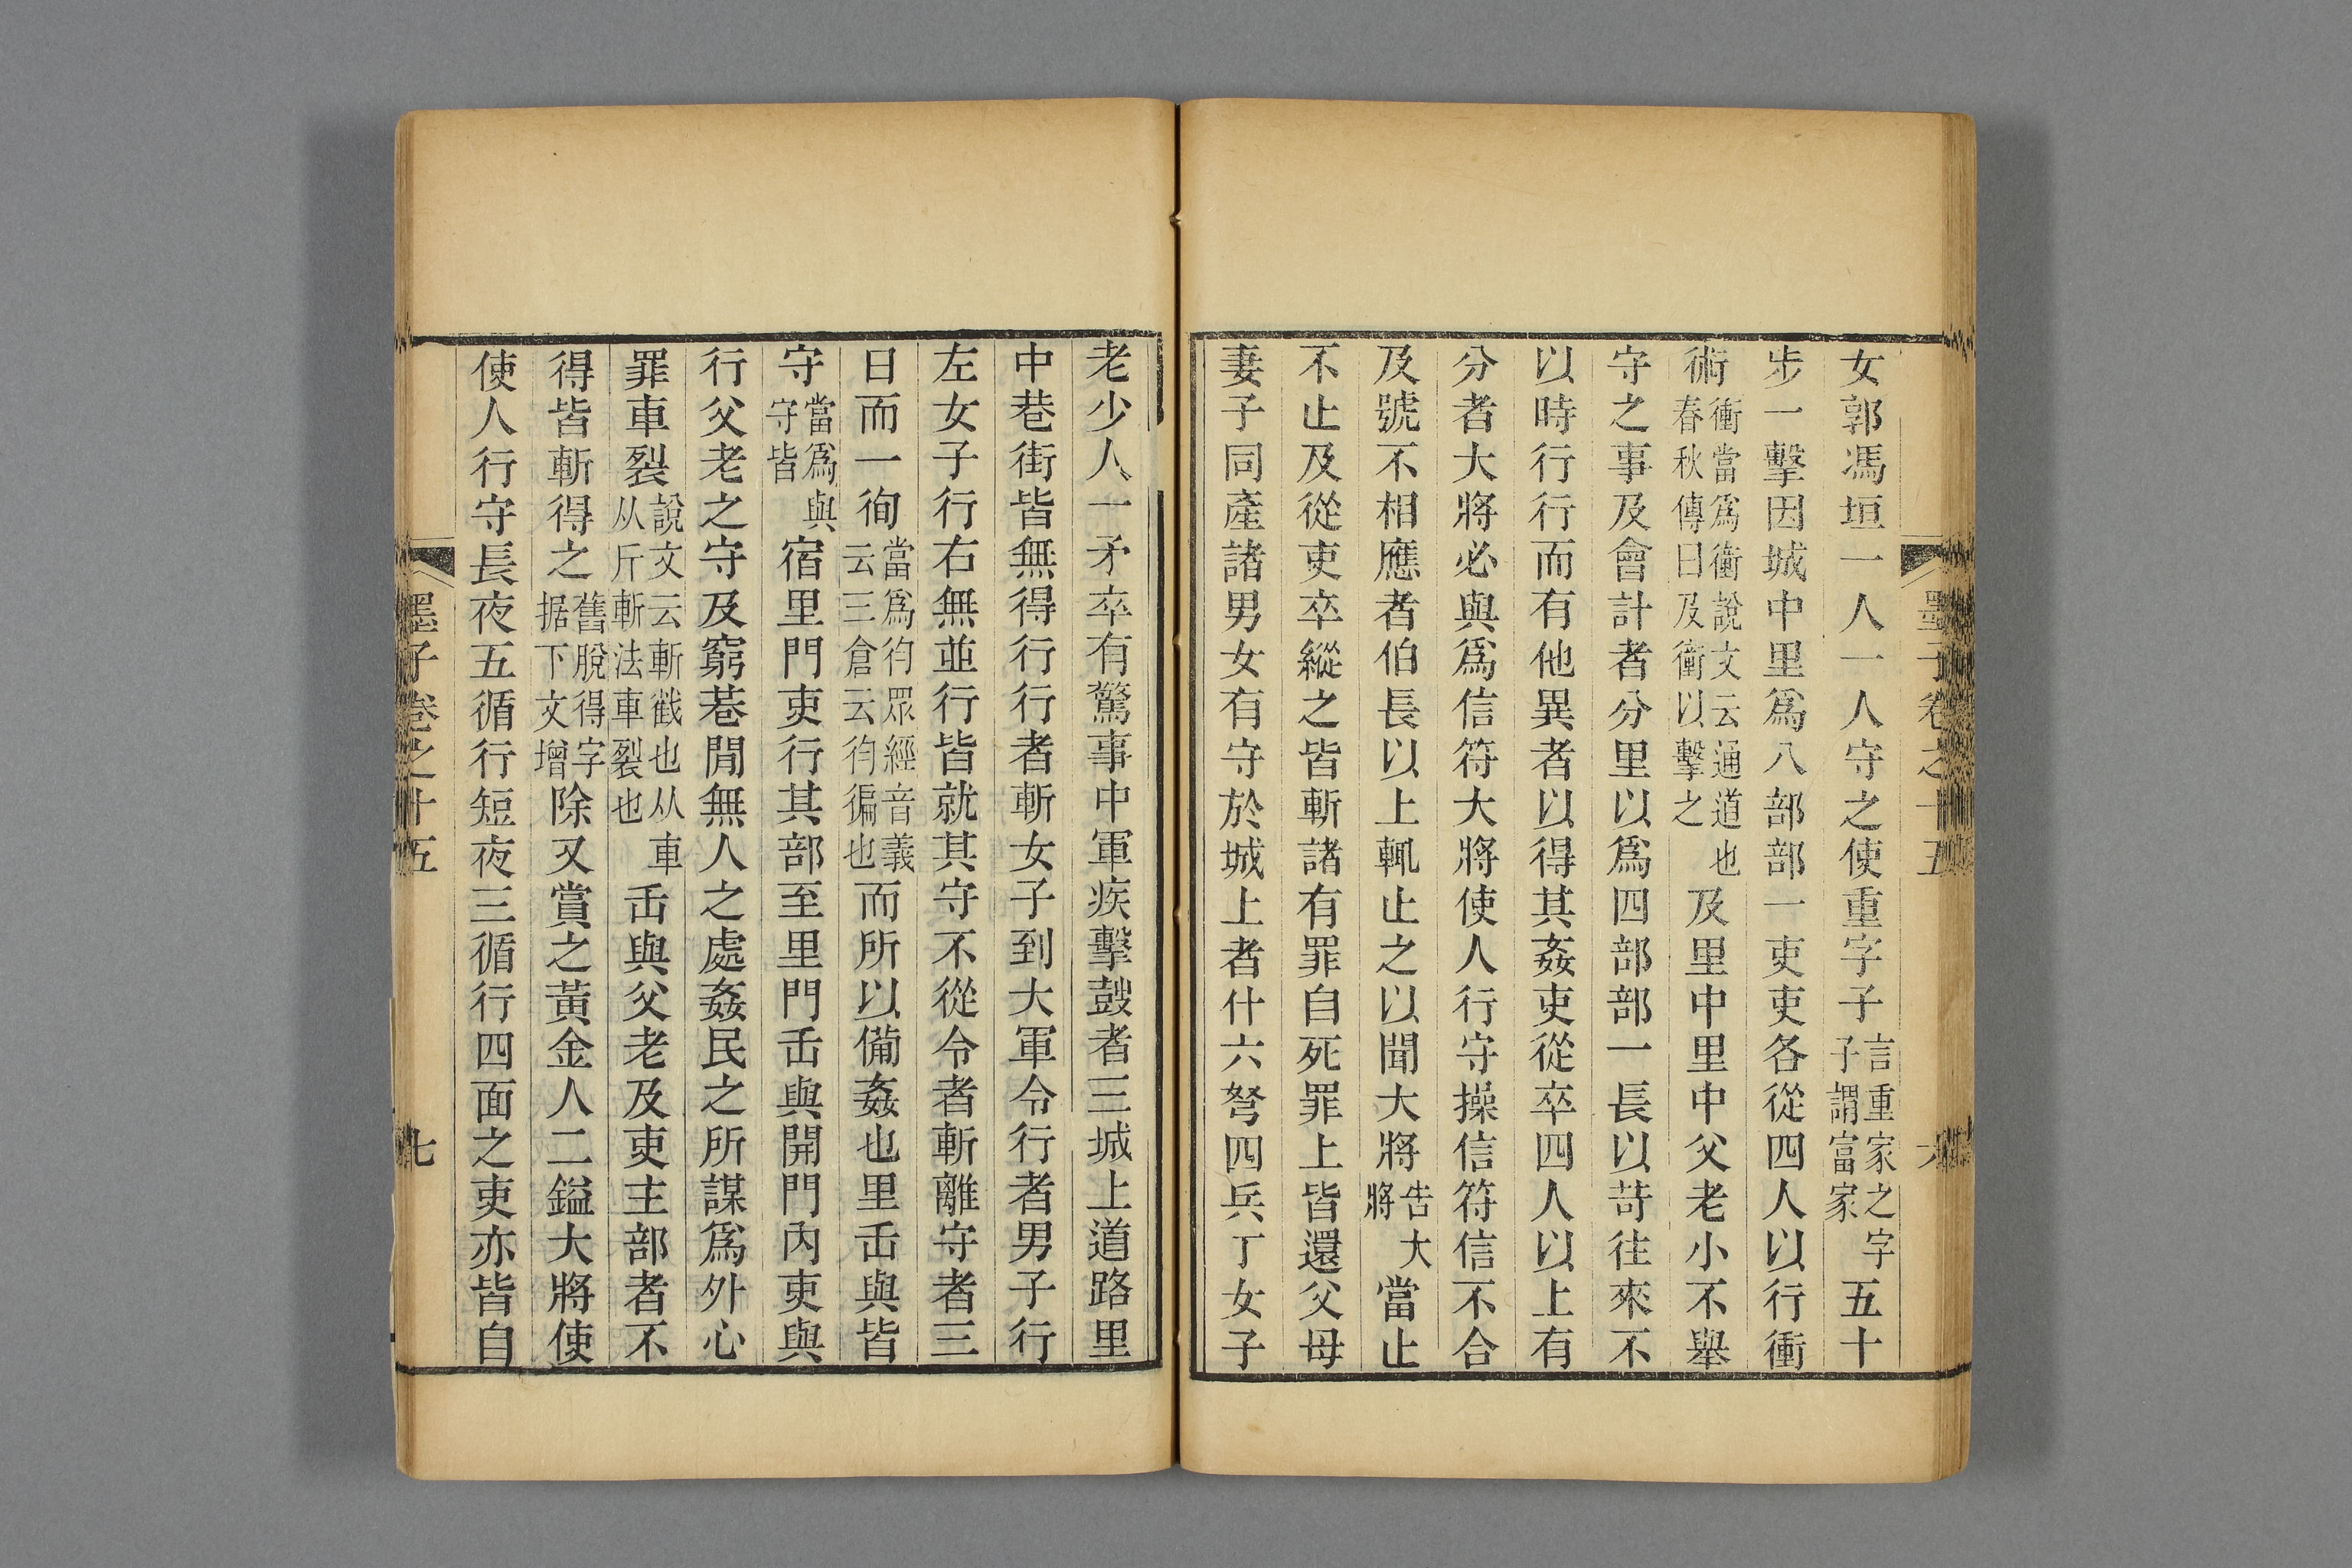 墨子卷之十五
六
女郭馮垣一人一人守之使重字子言重家之字子謂富家五十
步一擊因城中里爲八部部一吏吏各從四人以行衝
術衝當爲衝說文云通道也春秋傳曰及衝以擊之及里中里中父老小不舉
守之事及會計者分里以爲四部部一長以苛往來不
以時行行而有他異者以得其姦吏從卒四人以上有
分者大將必與爲信符大將使人行守操信符信不合
及號不相應者伯長以上輒止之以聞大將告大將當止
不止及從吏卒縱之皆斬諸有罪自死罪上皆還父母
妻子同產諸男女有守於城上者什六弩四兵丁女子
老少人一矛卒有驚事中軍疾擊鼓者三城上道路里
中巷街皆無得行行者斬女子到大軍令行者男子行
左女子行右無並行皆就其守不從令者斬離守者三
日而一徇當爲徇眾經音義云三倉云徇徧也而所以備姦也里𠱷與皆
守當爲與守皆宿里門吏行其部至里門𠱷與開門內吏與
行父老之守及窮巷閒無人之處姦民之所謀爲外心
罪車裂說文云斬截也从車从斤斬法車裂也𠱷與父老及吏主部者不
得皆斬得之舊脫得字据下文增除又賞之黃金人二鎰大將使
使人行守長夜五循行短夜三循行四面之吏亦皆自
墨子卷之十五
七